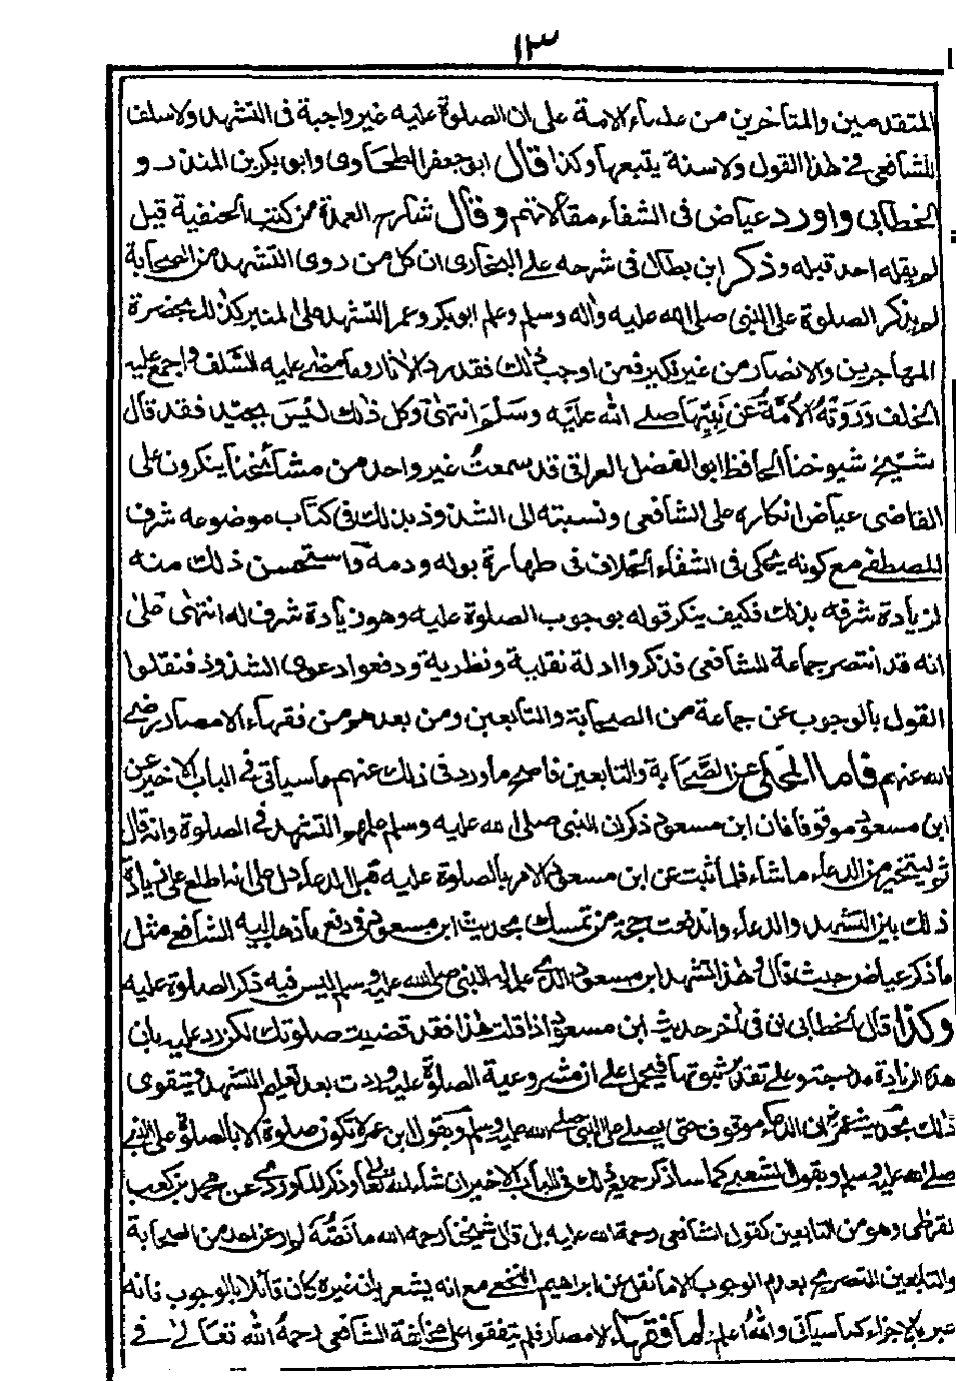 ١٣
المتقدمين والمتأخرين من علماء الامة على ان الصلوة عليه غير واجبة فى التشهد ولا سلف
للشافعى فى هذا القول ولا سنة يتبعها وكذا قال ابو جعفر الطحاوى وابو بكر بن المنذر و
الخطابى واورد عياض فى الشفاء مقالاتهم وقال شارح العمدة من كتب الحنفية قيل
لم يقله احد قبله وذكر ابن بطال فى شرحه على البخارى ان كل من روى التشهد من الصحابة
لم يذكر الصلوة على النبى صلى الله عليه واله وسلم وعلم ابو بكر وعمر التشهد على المنبر كذلك بحضرة
المهاجرين والانصار من غير نكير فمن اوجب ذلك فقد رد الاثار وما مضى عليه السلف واجمع عليه
الخلف وروته الامة عن نبيها صلى الله عليه وسلم انتهى وكل ذلك ليس بجيد فقد قال
شيخ شيوخنا الحافظ ابو الفضل العراقى قد سمعت غير واحد من مشائخنا ينكرون على
القاضى عياض انكاره على الشافعى ونسبته الى الشذوذ بذلك فى كتاب موضوعه شرف
المصطفى مع كونه يحكى فى الشفاء الخلاف فى طهارة بوله ودمه واستحسن ذلك منه
لزيادة شرفه بذلك فكيف ينكر قوله بوجوب الصلوة عليه وهو زيادة شرف له انتهى على
انه قد انتصر جماعة للشافعى فذكروا ادلة نقلية ونظرية ودفعوا دعوى الشذوذ فنقلوا
القول بالوجوب عن جماعة من الصحابة والتابعين ومن بعدهم من فقهاء الامصار رضى
الله عنهم فاما المحكى عن الصحابة والتابعين فاصح ما ورد فى ذلك عنهم ما سياتى فى الباب الاخير عن
ابن مسعود موقوفا فان ابن مسعود ذكر ان النبى صلى الله عليه وسلم علمهم التشهد فى الصلوة وانه قال
ثم ليتخير من الدعاء ما شاء فلما ثبت عن ابن مسعود الامر بالصلوة عليه قبل الدعاء دل على انه اطلع على زيادة
ذلك بين التشهد والدعاء واندفعت حجة من تمسك بحديث ابن مسعود فى دفع ما ذهب اليه الشافعى مثل
ما ذكر عياض حيث قال وهذا تشهد ابن مسعود الذى علمه له النبى صلى الله عليه وسلم ليس فيه ذكر الصلوة عليه
وكذا قال الخطابى ان فى اخر حديث ابن مسعود اذا قلت هذا فقد قضيت صلوتك لكن رد عليه بان
هذه الزيادة مدرجة وعلى تقدير ثبوتها فيحمل على ان مشروعية الصلوة عليه وردت بعد تعليم التشهد ويتقوى
ذلك بحديث عمر ان الدعاء موقوف حتى يصلى على النبى صلى الله عليه وسلم وبقول ابن عمر لا تكون صلوة الا بالصلوة على النبى
صلى الله عليه وسلم وبقول الشعبى كما ساذكر جميع ذلك فى الباب الاخير ان شاء الله تعالى وذكر الماوردى عن محمد بن كعب
القرظى وهو من التابعين كقول الشافعى رحمة الله عليه بل قال شيخنا رحمه الله ما نصه لم ار عن احد من الصحابة
والتابعين التصريح بعدم الوجوب الا ما نقل عن ابراهيم النخعى مع انه يشعر بان غيره كان قائلا بالوجوب فانه
عبر بالاجزاء كما سياتى والله اعلم اما فقهاء الامصار فلم يتفقوا على مخالفة الشافعى رحمه الله تعالى فى